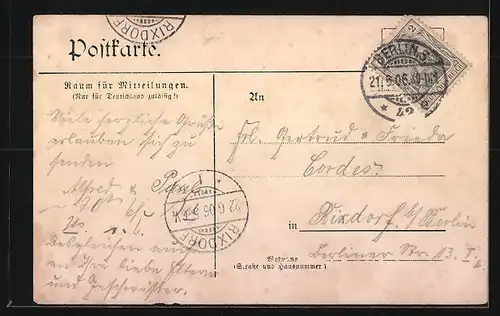 RIXDORF
Postkarte.
Raum für Mitteilungen.
(Nur für Deutschland zulässig!)
Viele herzliche Grüße
erlauben sich zu
senden
Alfred & Paul
Desgleichen auch
an Ihre lieben Eltern
und Geschwister.
BERLIN S.
21.6.06.
* 42
RIXDORF
22.6.06
* 1
An
Frl. Gertrud u Frieda
Cordes
in Rixdorf b/Berlin
Berliner Str. 13. I
Wohnung
(Straße und Hausnummer)